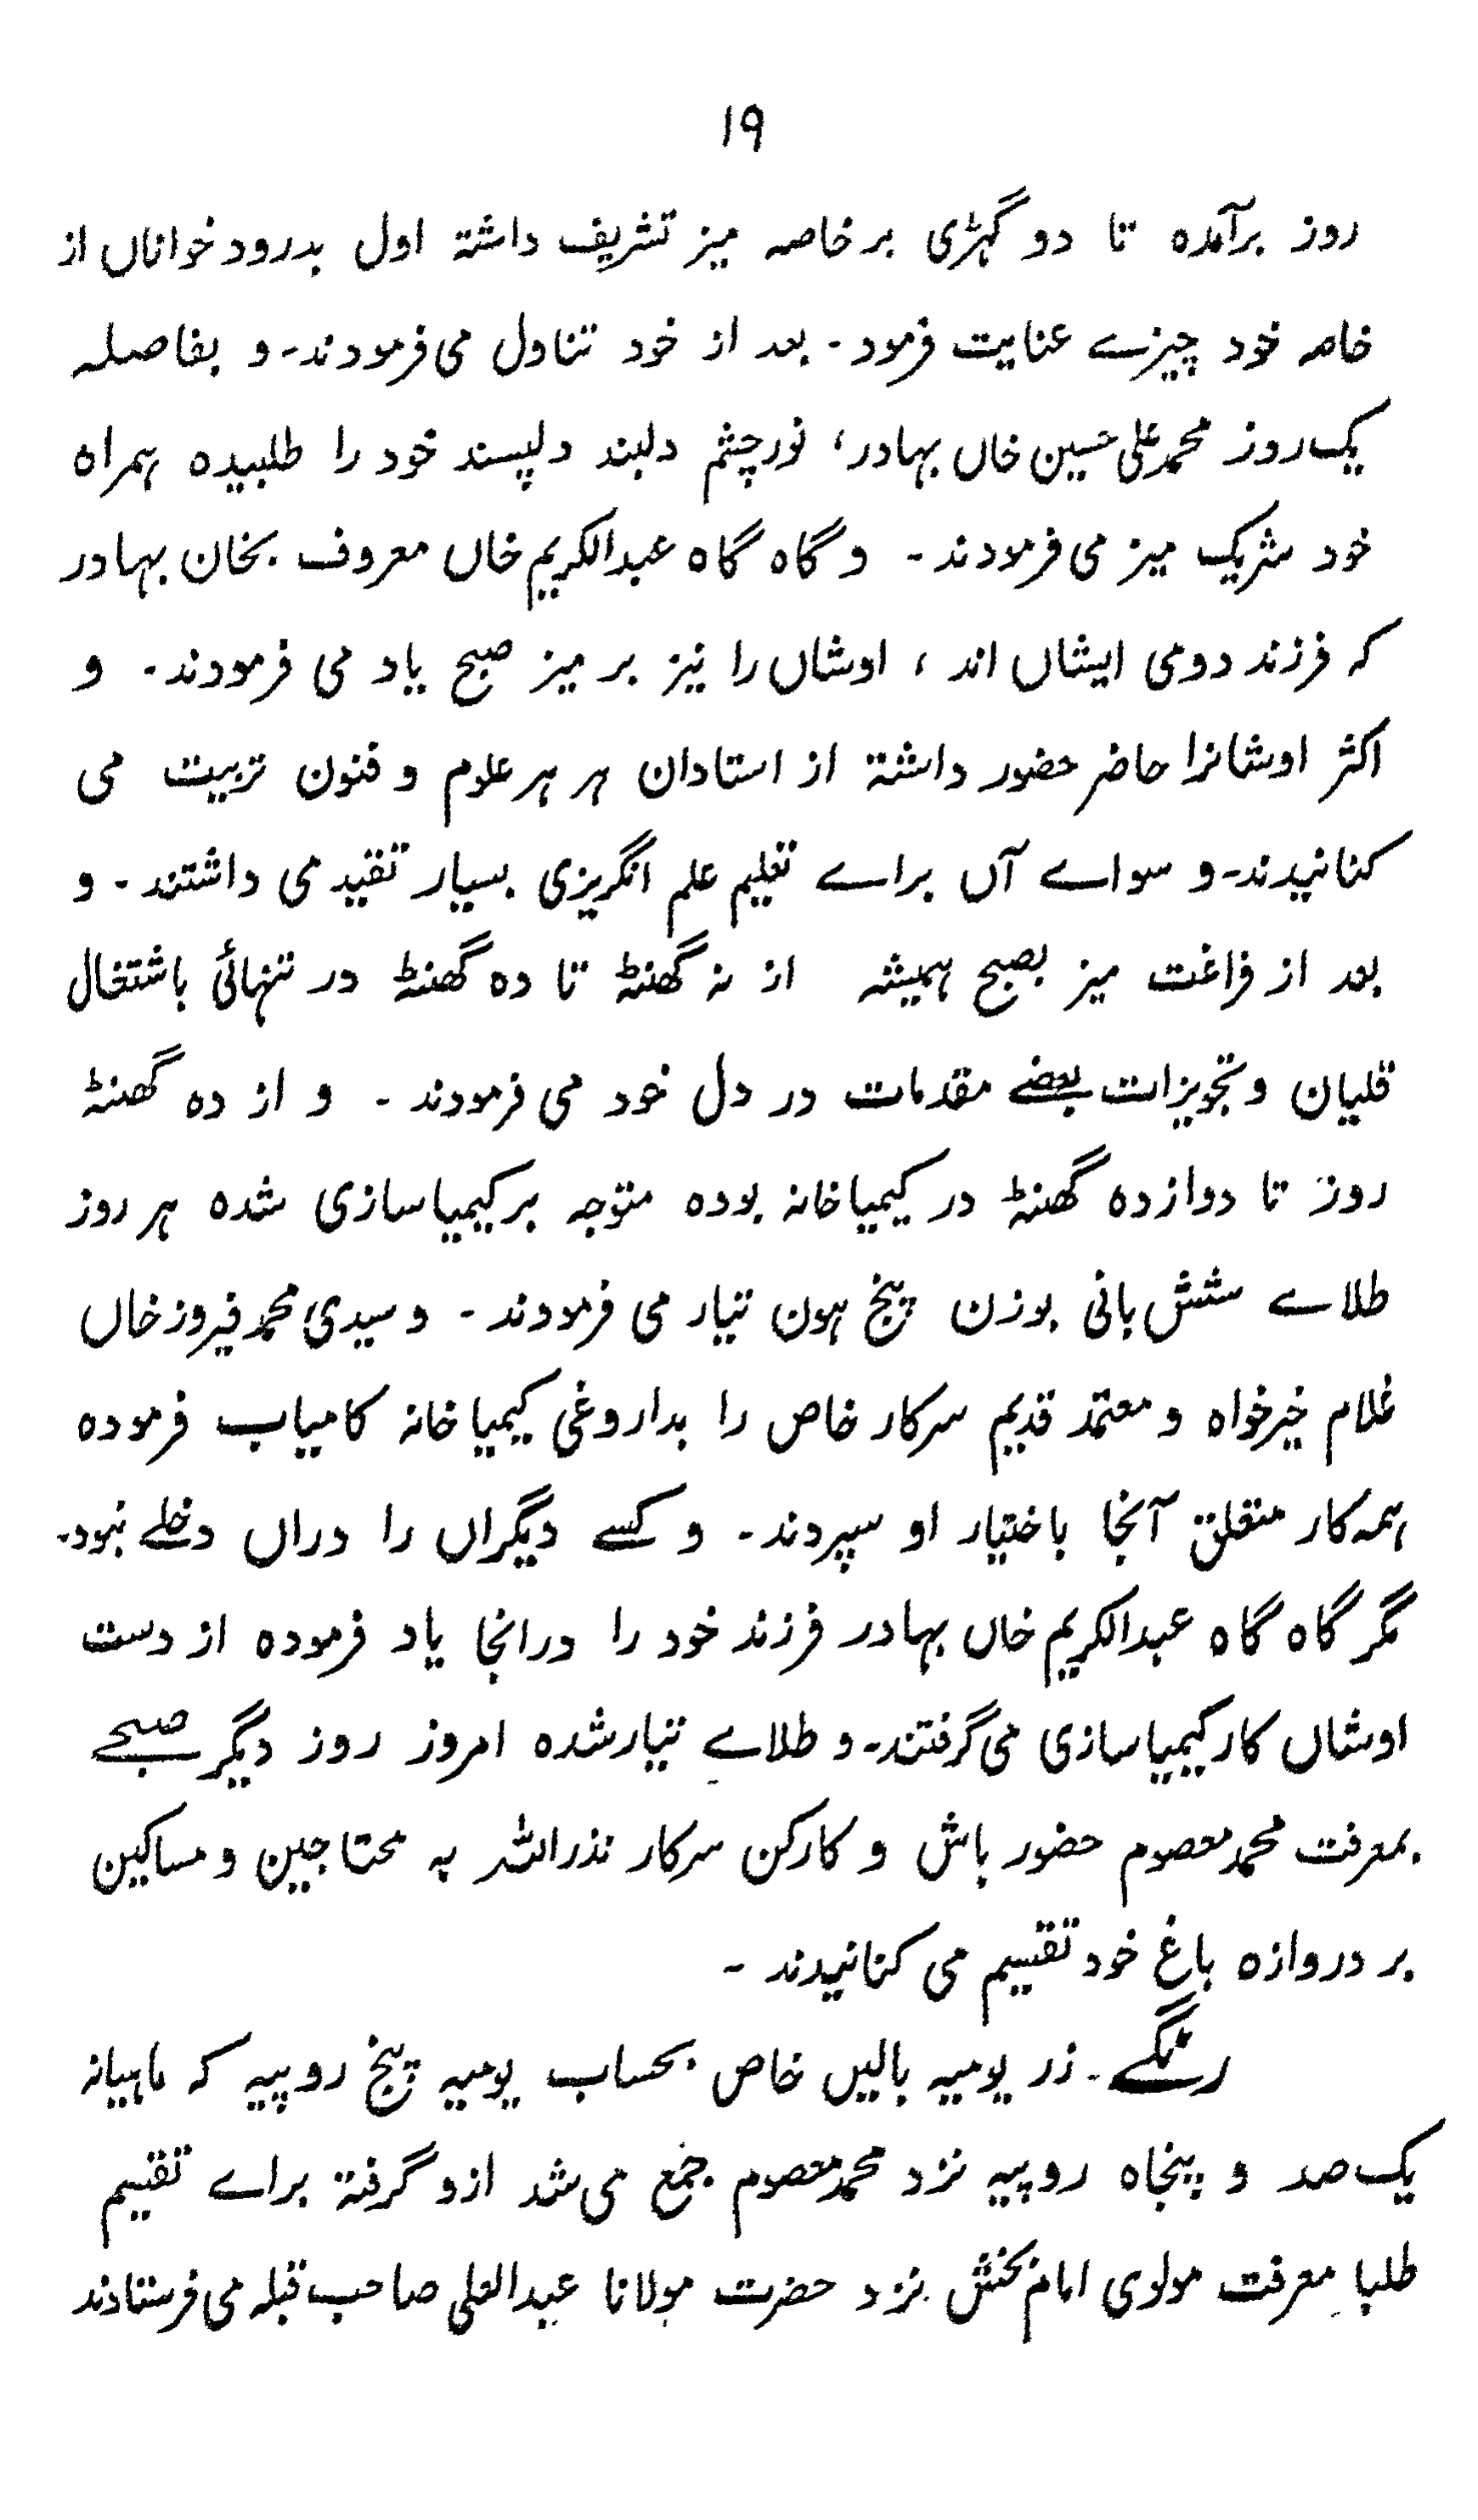 ۱۹
روز برآمده تا دو گہڑی بر خاصہ میز تشریف داشتہ اول بدرود خواناں از
خاصہ خود چیزے عنایت فرمود۔ بعد از خود تناول می فرمودند۔ و بفاصلہ
یک روز محمد علی حسین خاں بہادر، نور چشم دلبند دلپسند خود را طلبیدہ ہمراہ
خود شریک میز می فرمودند۔ و گاہ گاہ عبدالکریم خاں معروف بخان بہادر
کہ فرزند دومی ایشاں اند، اوشاں را نیز بر میز صبح یاد می فرمودند۔ و
اکثر اوشانرا حاضر حضور داشتہ از استادان ہر ہر علوم و فنون تربیت می
کنانیدند۔ و سواے آں براے تعلیم علم انگریزی بسیار تقید می داشتند۔ و
بعد از فراغت میز بصبح ہمیشہ از نہ گھنٹہ تا دہ گھنٹہ در تنہائی باشتغال
قلیان و تجویزات بعضے مقدمات در دل خود می فرمودند۔ و از دہ گھنٹہ
روز تا دوازدہ گھنٹہ در کیمیا خانہ بودہ متوجہ بر کیمیا سازی شدہ ہر روز
طلاے شش بانی بوزن پنج ہون تیار می فرمودند۔ و سیدی محمد فیروز خاں
غلام خیرخواہ و معتمد قدیم سرکار خاص را بداروغی کیمیا خانہ کامیاب فرمودہ
ہمہ کار متعلق آنجا باختیار او سپردند۔ و کسے دیگراں را دراں دخلے نبود۔
مگر گاہ گاہ عبدالکریم خاں بہادر فرزند خود را درانجا یاد فرمودہ از دست
اوشاں کار کیمیا سازی می گرفتند۔ و طلاے تیار شدہ امروز روز دیگر صبحے
بمعرفت محمد معصوم حضور باش و کارکن سرکار نذر اللہ بہ محتاجین و مساکین
بر دروازہ باغ خود تقسیم می کنانیدند۔
رنگے۔ زر یومیہ بالیں خاص بحساب یومیہ پنج روپیہ کہ ماہیانہ
یک صد و پنجاہ روپیہ نزد محمد معصوم جمع می شد ازو گرفتہ براے تقسیم
طلبا معرفت مولوی امام بخش نزد حضرت مولانا عبدالعلی صاحب قبلہ می فرستادند